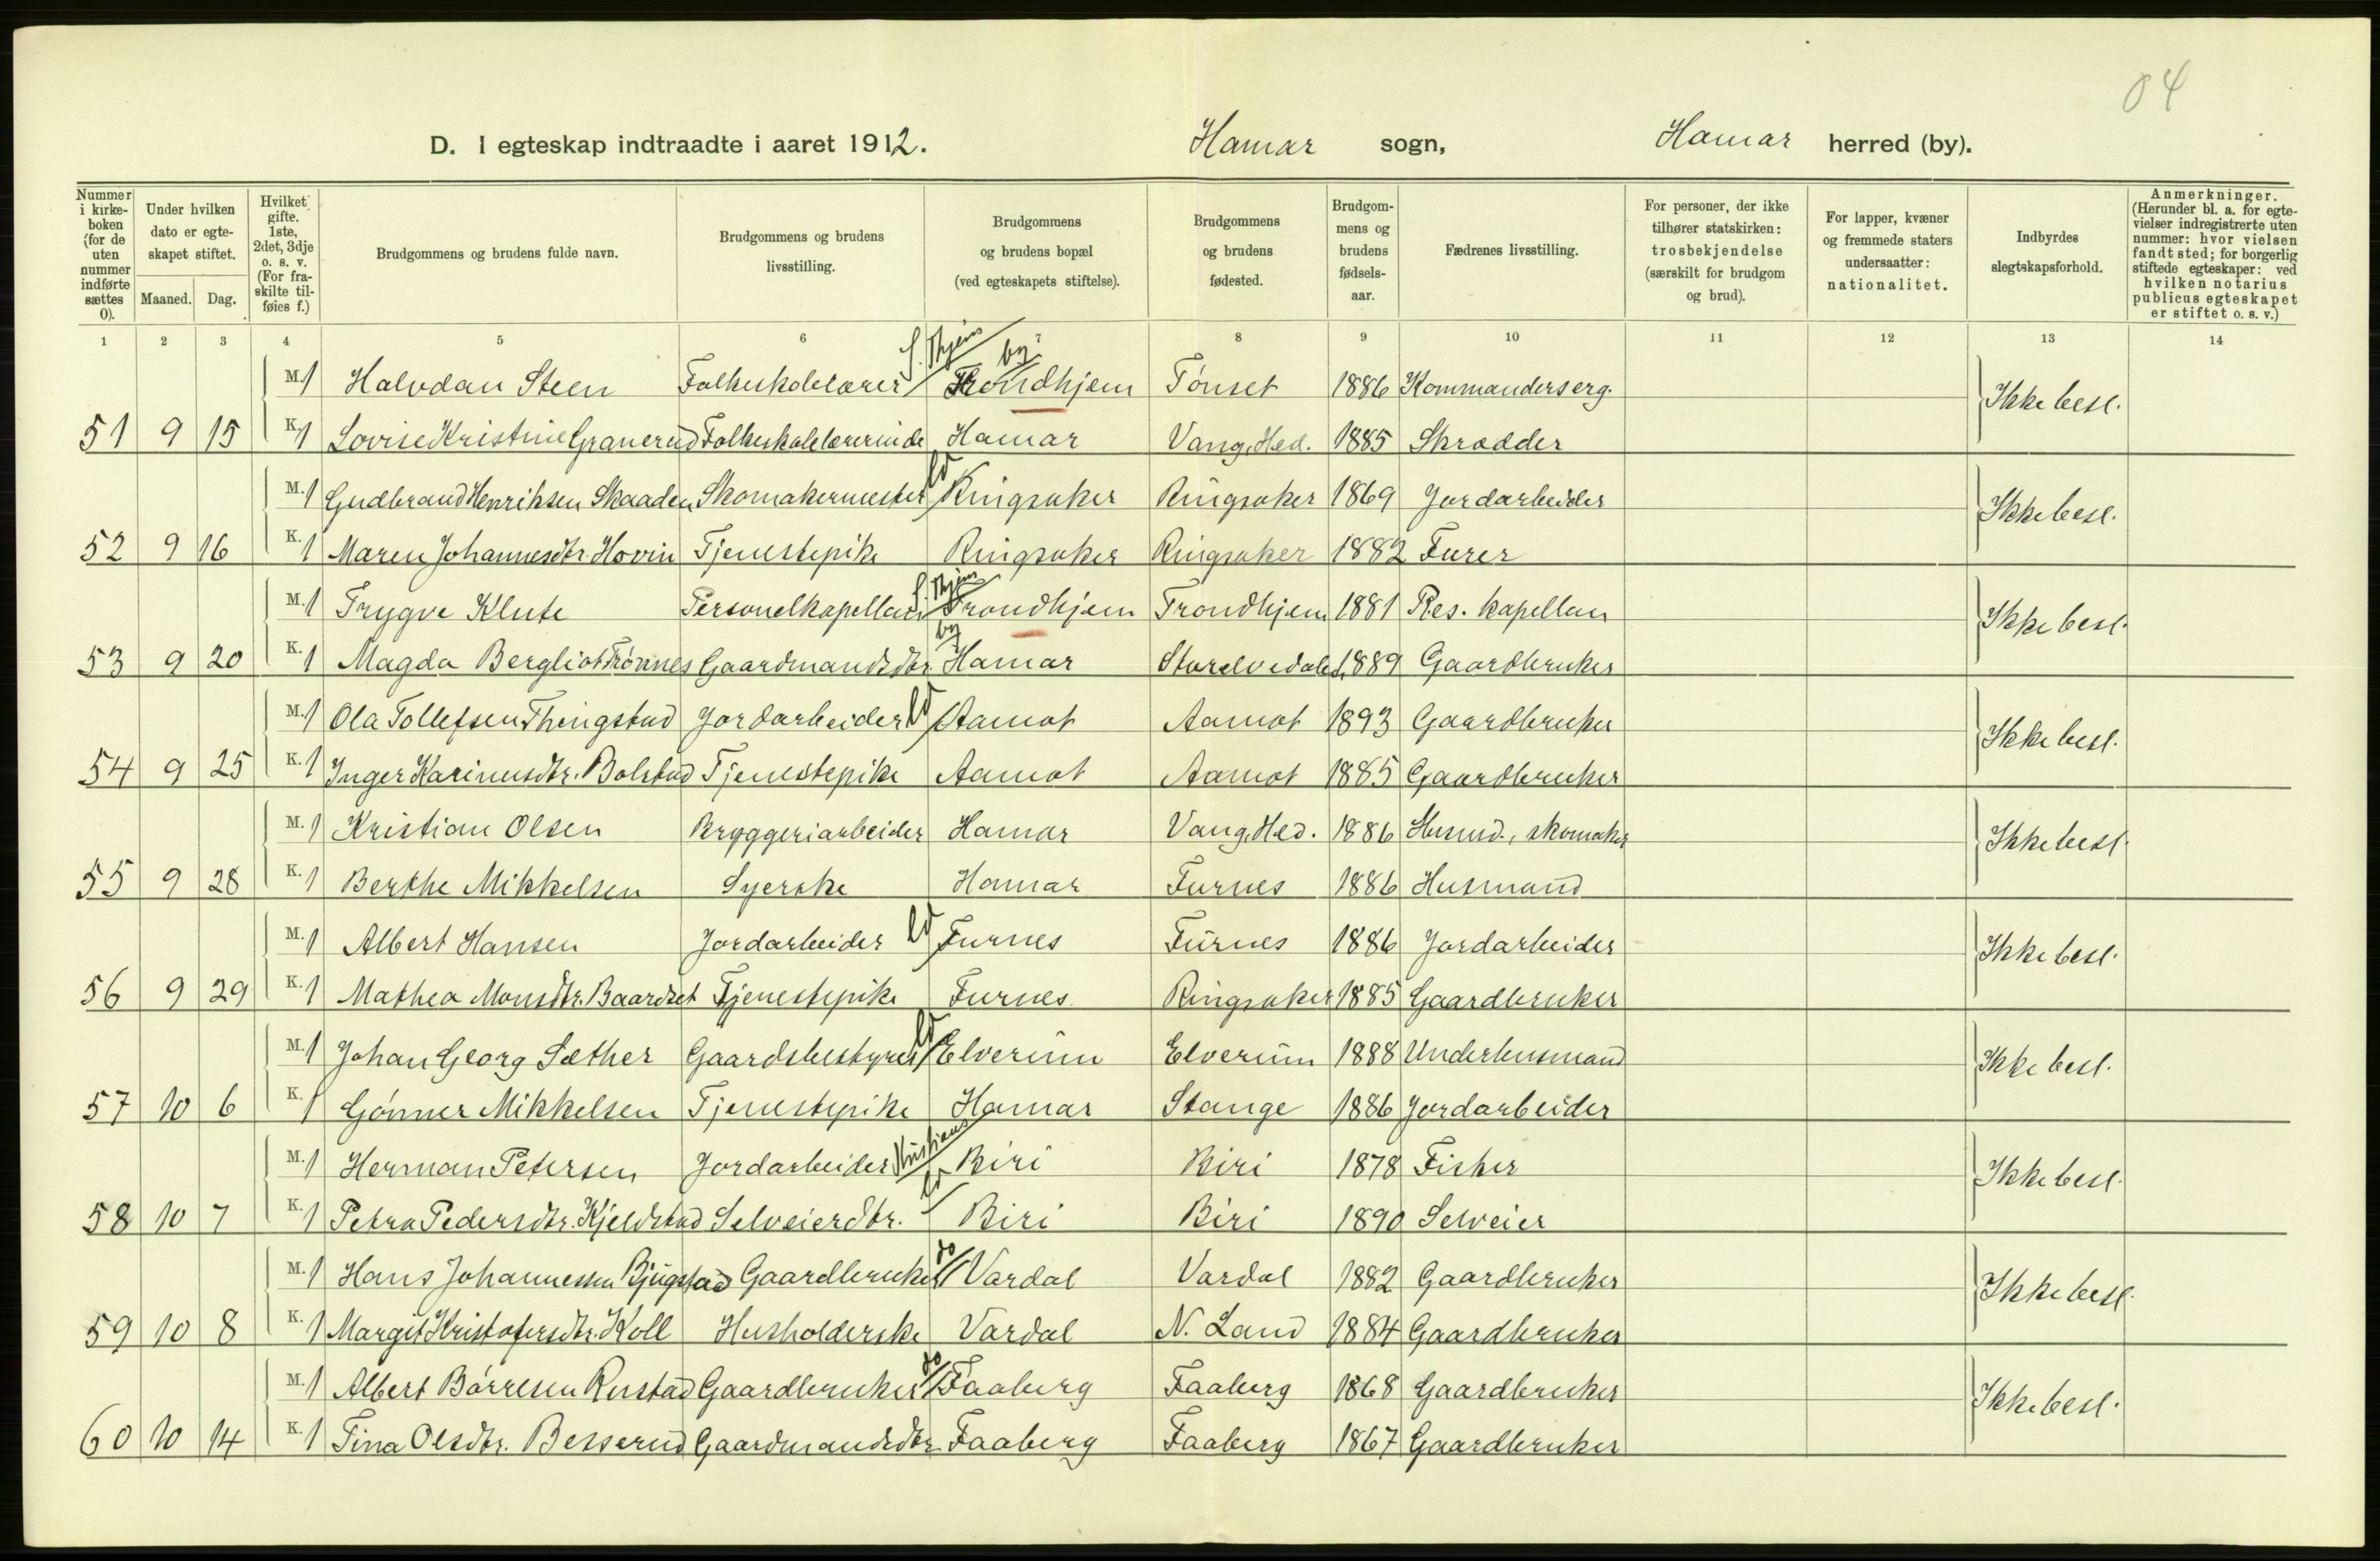 04
D. I egteskap indtraadte i aaret 1912. Hamar sogn, Hamar herred (by).
Nummer i kirke-boken (for de uten nummer indførte sættes 0).
Under hvilken dato er egte-skapet stiftet.
Maaned. Dag.
Hvilket gifte. 1ste, 2det, 3dje o. s. v. (For fra-skilte til-føies f.)
Brudgommens og brudens fulde navn.
Brudgommens og brudens livsstilling.
Brudgommens og brudens bopæl (ved egteskapets stiftelse).
Brudgommens og brudens fødested.
Brudgom-mens og brudens fødsels-aar.
Fædrenes livsstilling.
For personer, der ikke tilhører statskirken: trosbekjendelse (særskilt for brudgom og brud).
For lapper, kvæner og fremmede staters undersaatter: nationalitet.
Indbyrdes slegtskapsforhold.
Anmerkninger. (Herunder bl. a. for egte-vielser indregistrerte uten nummer: hvor vielsen fandt sted; for borgerlig stiftede egteskaper: ved hvilken notarius publicus egteskapet er stiftet o. s. v.)
1 2 3 4 5 6 7 8 9 10 11 12 13 14
M. 1 Halvdan Steen Folkeskolelærer S. Thjems by Trondhjem Tønset 1886 Kommanderserg. Ikke besl.
51 9 15 K. 1 Lovise Kristine Granerud Folkeskolelærerinde Hamar Vang, Hed. 1885 Skrædder
M. 1 Gudbrand Henriksen Skaaden Skomakermester Ringsaker Ringsaker 1869 Jordarbeider Ikke besl.
52 9 16 K. 1 Maren Johannesdtr. Hovin Tjenestepike Ringsaker Ringsaker 1882 Furer
M. 1 Trygve Klute Personelkapellan S. Thjems by Trondhjem Trondhjem 1881 Res. kapellan Ikke besl.
53 9 20 K. 1 Magda Bergliot Trønnes Gaardmandsdtr. Hamar Storelvedalen 1889 Gaardbruker
M. 1 Ola Tollefsen Thingstad Jordarbeider Aamot Aamot 1893 Gaardbruker Ikke besl.
54 9 25 K. 1 Inger Karinusdtr. Bolstad Tjenestepike Aamot Aamot 1885 Gaardbruker
M. 1 Kristian Olsen Bryggeriarbeider Hamar Vang, Hed. 1886 Husmd., skomaker Ikke besl.
55 9 28 K. 1 Berthe Mikkelsen Syerske Hamar Furnes 1886 Husmand
M. 1 Albert Hansen Jordarbeider Furnes Furnes 1886 Jordarbeider Ikke besl.
56 9 29 K. 1 Mathea Monsdtr. Baardset Tjenestepike Furnes Ringsaker 1885 Gaardbruker
M. 1 Johan Georg Sæther Gaardsbestyrer Elverum Elverum 1888 Underhusmand Ikke besl.
57 10 6 K. 1 Gønner Mikkelsen Tjenestepike Hamar Stange 1886 Jordarbeider
M. 1 Herman Petersen Jordarbeider Kristians Biri Biri 1878 Fisker Ikke besl.
58 10 7 K. 1 Petra Pedersdtr. Kjeldstad Selveierdtr. Biri Biri 1890 Selveier
M. 1 Hans Johannessen Bjugstad Gaardbruker do Vardal Vardal 1882 Gaardbruker Ikke besl.
59 10 8 K. 1 Margit Kristofersdtr. Koll Husholderske Vardal N. Land 1884 Gaardbruker
M. 1 Albert Børresen Rustad Gaardbruker do Faaberg Faaberg 1868 Gaardbruker Ikke besl.
60 10 14 K. 1 Tina Olsdtr. Besserud Gaardmandsdtr. Faaberg Faaberg 1867 Gaardbruker